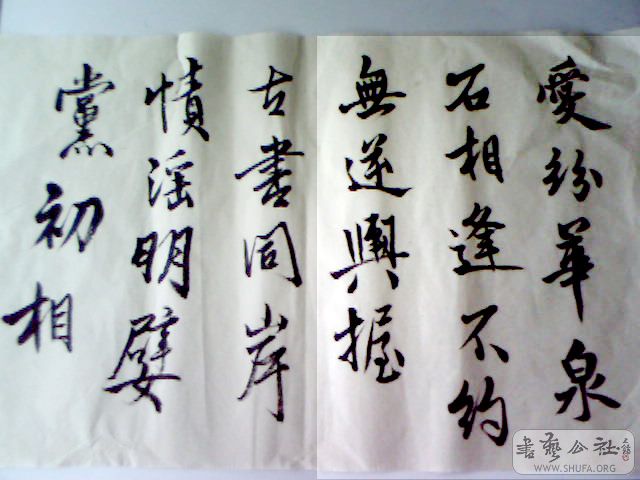 愛紛華泉
石相逢不約
無遂輿握
古書同岸
情淫明嬖
黨初相
書藝公社
WWW.SHUFA.ORG